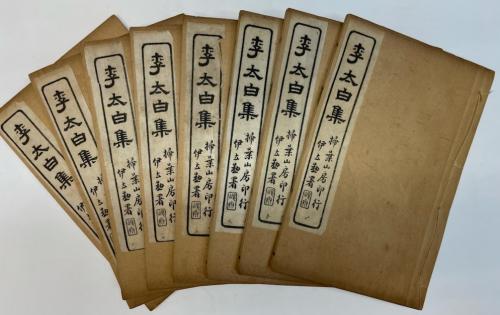 李太白集
掃葉山房印行
伊立勳署
李太白集
掃葉山房印行
伊立勳署
李太白集
掃葉山房印行
伊立勳署
李太白集
掃葉山房印行
伊立勳署
李太白集
掃葉山房印行
伊立勳署
李太白集
掃葉山房印行
伊立勳署
李太白集
掃葉
伊立
李太白集